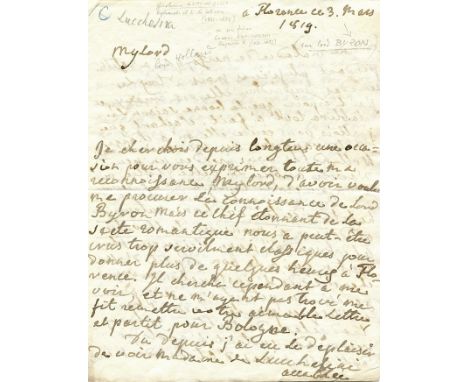 Lucchesini
a Florence ce 3. Mars
1819.
(sur Lord BYRON)
Mylord
Lord Holland
Je cherchois depuis longtems une oca-
sion pour vous exprimer toute ma
reconnoissance Mylord, d'avoir voulu
me procurer la connoissance de Lord
Byron. Mais ce chef étonnant de la
secte romantique nous a peut-être
crus trop servilment classiques pour
donner plus de quelques heures à Flo-
rence. Il chercha cependant a me
voir, et ne m'ayant pas trouvé me
fit remettre votre aimable Lettre
et partit pour Bologne.
Du depuis j'ai eu le déplaisir
de voir Madame de Lucchesini